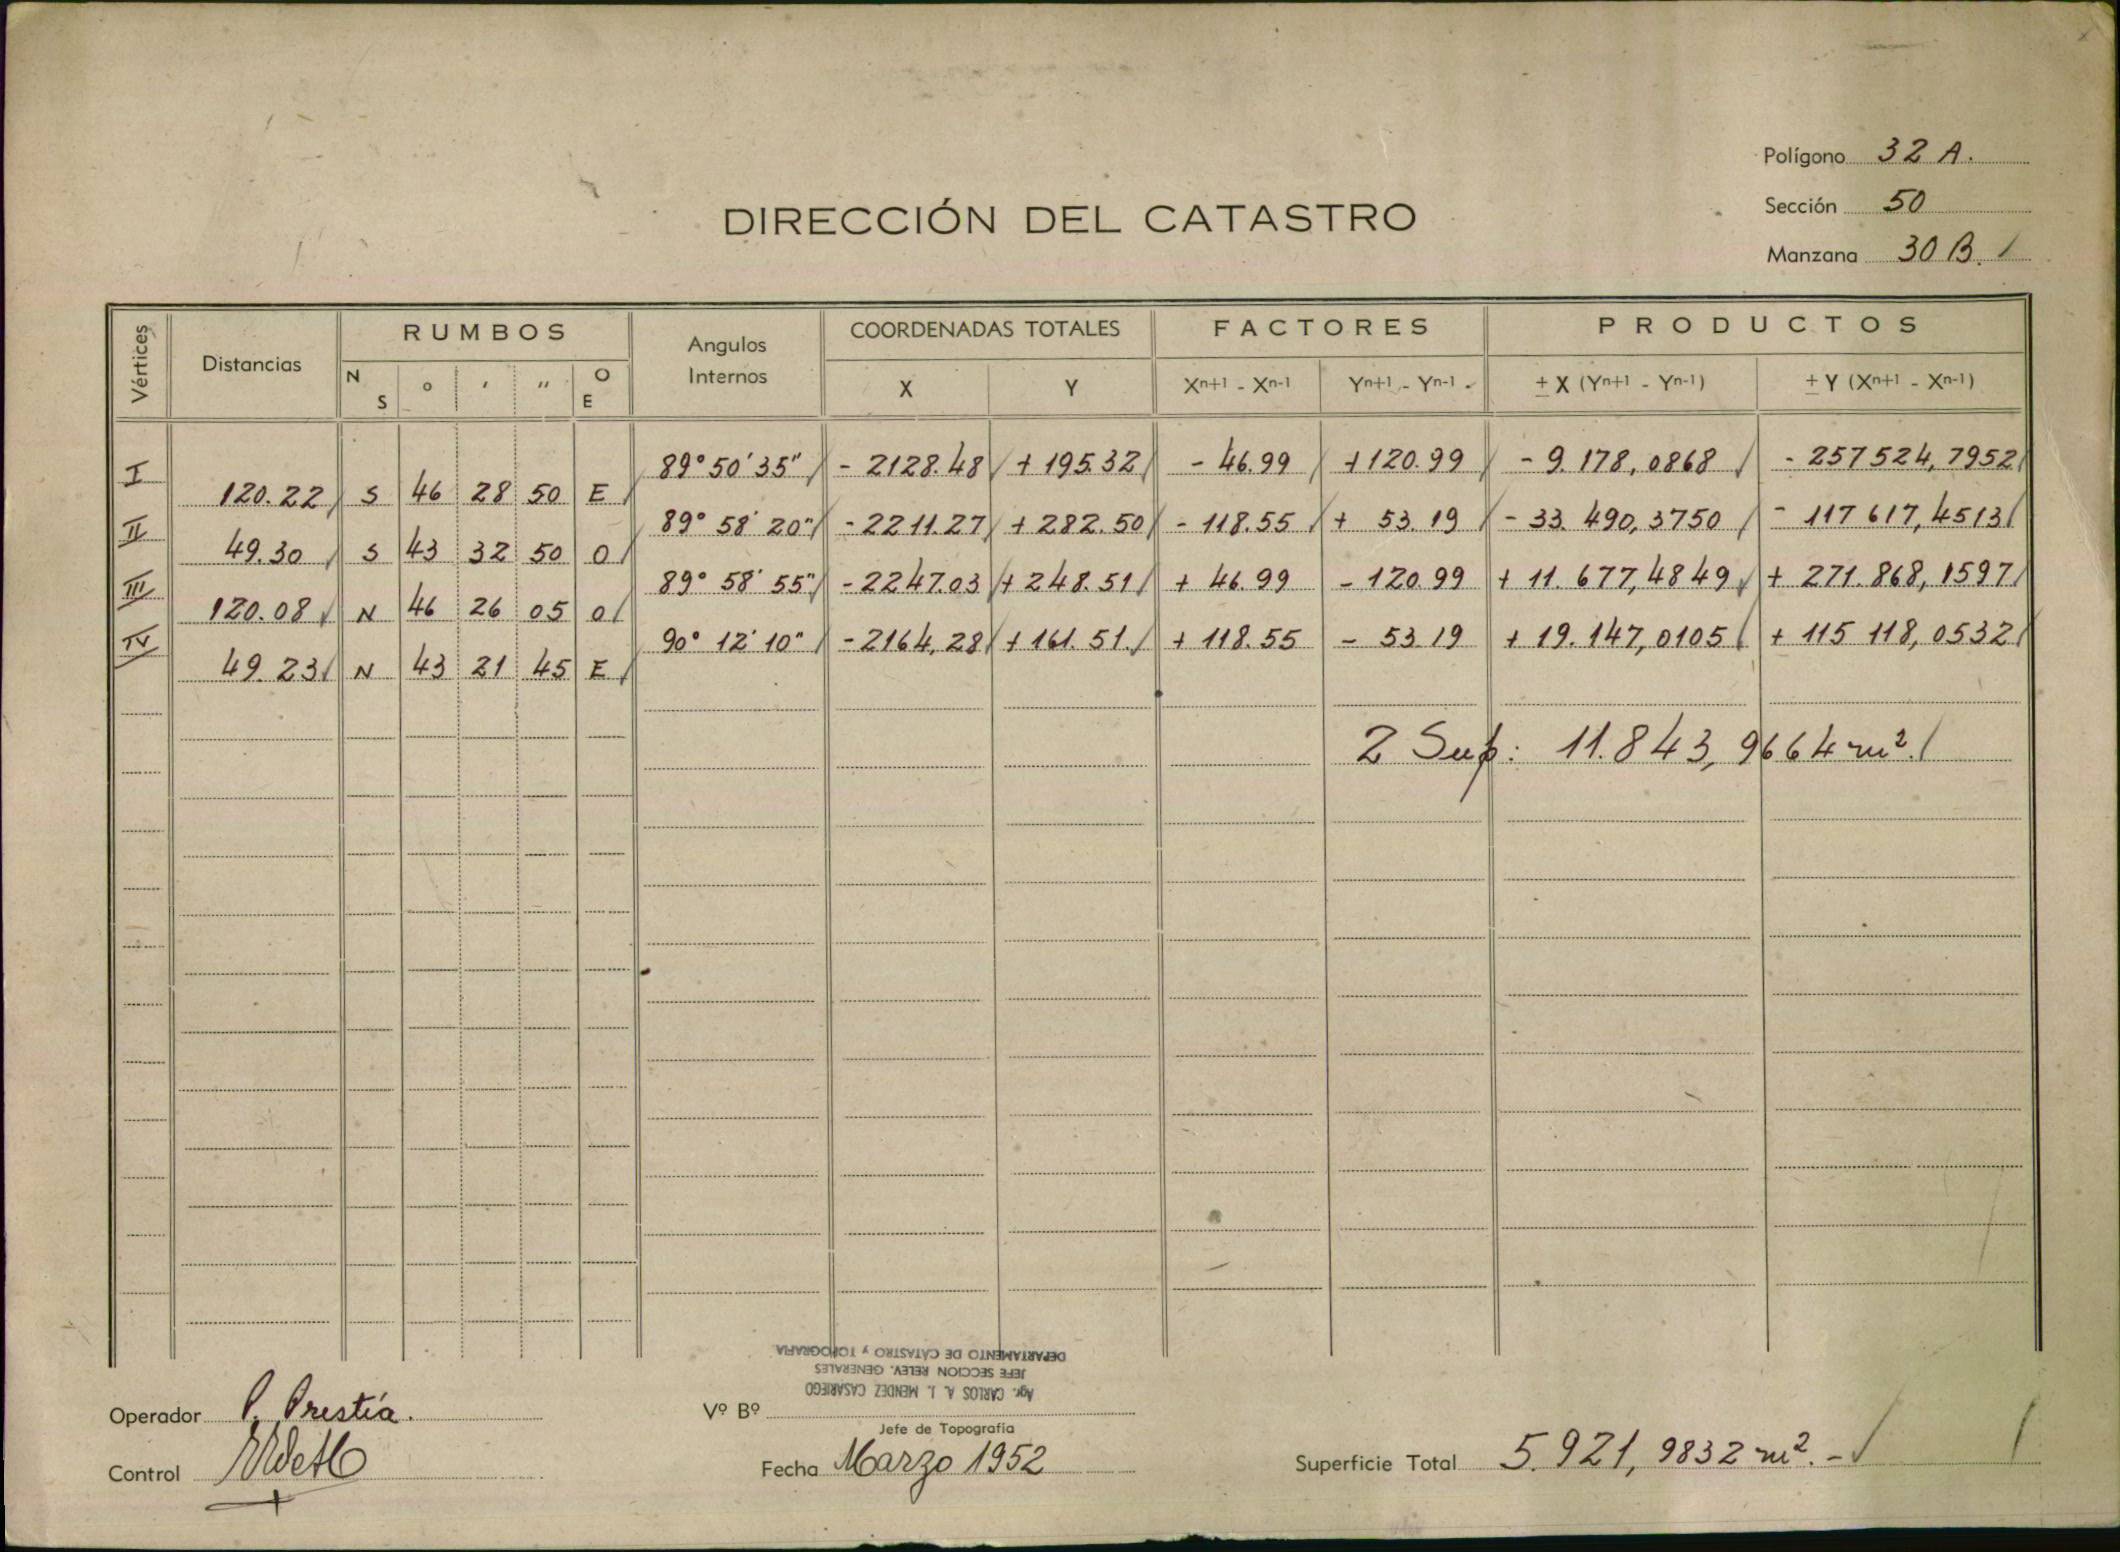 Polígono 32 A.
Sección 50
Manzana 30 B.
DIRECCIÓN DEL CATASTRO
Vértices Distancias RUMBOS Angulos Internos COORDENADAS TOTALES FACTORES PRODUCTOS
N S ° ' '' O E X Y Xn+1 - Xn-1 Yn+1 - Yn-1 ± X (Yn+1 - Yn-1) ± Y (Xn+1 - Xn-1)
I 89° 50' 35" - 2128.48 + 195.32 - 46.99 +120.99 - 9.178,0868 - 257524,7952
120.22 S 46 28 50 E
II 89° 58' 20" - 2211.27 + 282.50 - 118.55 + 53.19 - 33.490,3750 - 117617,4513
49.30 S 43 32 50 O
III 89° 58' 55" - 2247.03 + 248.51 + 46.99 - 120.99 + 11.677,4849 + 271.868,1597
120.08 N 46 26 05 O
IV 90° 12' 10" - 2164,28 + 161.51 + 118.55 - 53.19 + 19.147,0105 + 115118,0532
49.23 N 43 21 45 E
2 Sup: 11.843,9664 m².
Agr. CARLOS A. J. MENDEZ CASARIEGO
JEFE SECCION RELEV. GENERALES
DEPARTAMENTO DE CATASTRO y TOPOGRAFIA
Operador P. Prestía.
Vº Bº
Jefe de Topografía
Control
Fecha Marzo 1952
Superficie Total 5.921,9832 m². -